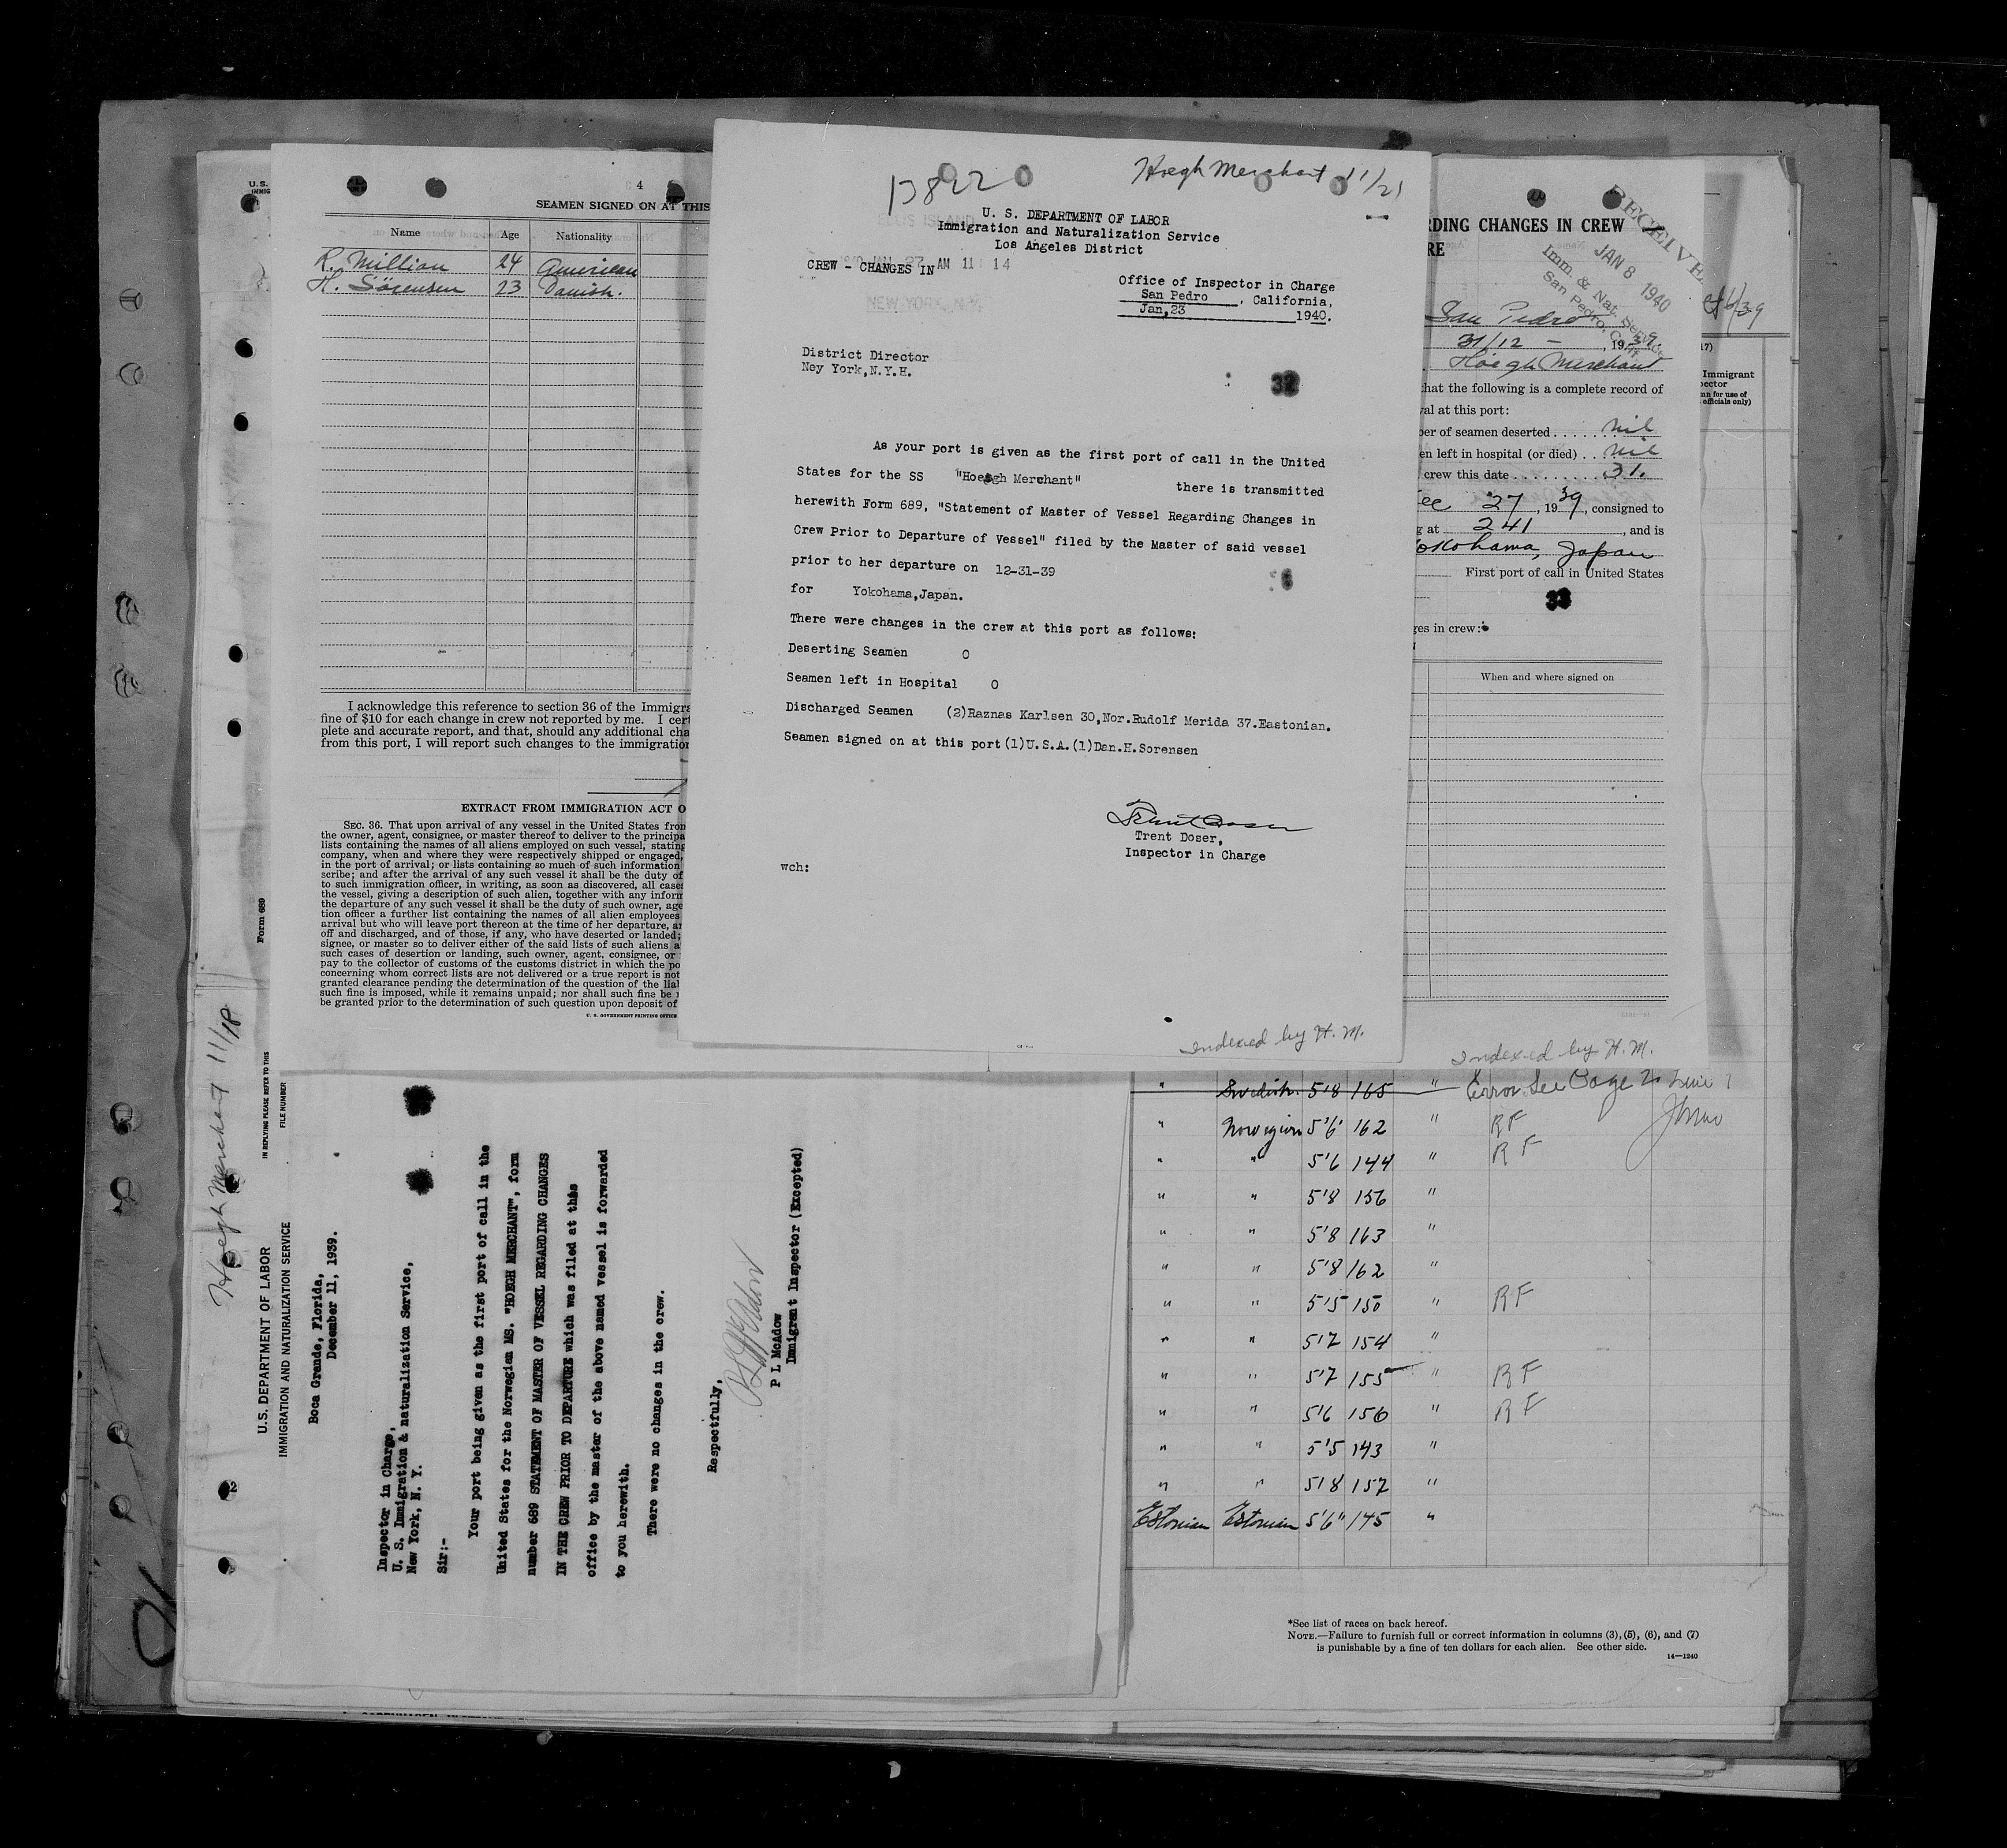 U.S.
IMMIG
4
SEAMEN SIGNED ON AT THIS
Name Age Nationality
R. Millian 24 American
H. Sörensen 23 Danish.
I acknowledge this reference to section 36 of the Immigra
fine of $10 for each change in crew not reported by me. I cert
plete and accurate report, and that, should any additional cha
from this port, I will report such changes to the immigration
EXTRACT FROM IMMIGRATION ACT O
SEC. 36. That upon arrival of any vessel in the United States from
the owner, agent, consignee, or master thereof to deliver to the principa
lists containing the names of all aliens employed on such vessel, stating
company, when and where they were respectively shipped or engaged,
in the port of arrival; or lists containing so much of such information
scribe; and after the arrival of any such vessel it shall be the duty of
to such immigration officer, in writing, as soon as discovered, all cases
the vessel, giving a description of such alien, together with any inform
the departure of any such vessel it shall be the duty of such owner, age
tion officer a further list containing the names of all alien employees
arrival but who will leave port thereon at the time of her departure, an
off and discharged, and of those, if any, who have deserted or landed;
signee, or master so to deliver either of the said lists of such aliens a
such cases of desertion or landing, such owner, agent, consignee, or
pay to the collector of customs of the customs district in which the po
concerning whom correct lists are not delivered or a true report is not
granted clearance pending the determination of the question of the liab
such fine is imposed, while it remains unpaid; nor shall such fine be
be granted prior to the determination of such question upon deposit of
U. S. GOVERNMENT PRINTING OFFICE
Form 689
Hoegh Merchant 11/21
ELLIS ISLAND
U. S. DEPARTMENT OF LABOR
Immigration and Naturalization Service
Los Angeles District
1940 JAN 27 AM 11 14
CREW - CHANGES IN
NEW YORK, N.Y.
Office of Inspector in Charge
San Pedro , California,
Jan,23 1940.
District Director
Ney York,N.Y.H.
32
As your port is given as the first port of call in the United
States for the SS "Hoegh Merchant" there is transmitted
herewith Form 689, "Statement of Master of Vessel Regarding Changes in
Crew Prior to Departure of Vessel" filed by the Master of said vessel
prior to her departure on 12-31-39
for Yokohama,Japan.
There were changes in the crew at this port as follows:
Deserting Seamen 0
Seamen left in Hospital 0
Discharged Seamen (2)Raznas Karlsen 30,Nor.Rudolf Merida 37.Eastonian.
Seamen signed on at this port(1)U.S.A.(1)Dan.H.Sorensen
Trent Doser
Trent Doser,
Inspector in Charge
wch:
Indexed by H. M.
RDING CHANGES IN CREW
RE
RECEIVE
JAN 8 1940
Imm. & Nat. Service
San Pedro, Calif.
San Pedro
31/12 - , 1939.
Hoegh Merchant
hat the following is a complete record of
val at this port:
ber of seamen deserted . . . . . . nil
en left in hospital (or died) . . nil
crew this date . . . . . . . . . . 31.
ec 27, 1939, consigned to
g at 241 , and is
okohama, Japan
First port of call in United States
33
ges in crew:
When and where signed on
Indexed by H. M.
/39
17)
Immigrant
pector
mn for use of
officials only)
Hoegh Merchant 11/18
U.S. DEPARTMENT OF LABOR
IMMIGRATION AND NATURALIZATION SERVICE
IN REPLYING PLEASE REFER TO THIS
FILE NUMBER
Boca Grande, Florida,
December 11, 1939.
Inspector in Charge,
U. S. Immigration & naturalization Service,
New York, N. Y.
Sir:-
Your port being given as the first port of call in the
United States for the Norwegian MS. "HOEGH MERCHANT", form
number 689 STATEMENT OF MASTER OF VESSEL REGARDING CHANGES
IN THE CREW PRIOR TO DEPARTURE which was filed at this
office by the master of the above named vessel is forwarded
to you herewith.
There were no changes in the crew.
Respectfully,
P L McAdow
P L McAdow
Immigrant Inspector (Excepted)
2
" Swedish 5'8 165 " Error See Page 2 Line 7
" Norwegian 5'6 162 " RF
" " 5'6 144 " RF
" " 5'8 156 "
" " 5'8 163 "
" " 5'8 162 "
" " 5'5 150 " RF
" " 5'7 154 "
" " 5'7 155 " RF
" " 5'6 156 " RF
" " 5'5 143 "
" " 5'8 157 "
Estonian Estonian 5'6" 145 "
*See list of races on back hereof.
NOTE.—Failure to furnish full or correct information in columns (3), (5), (6), and (7)
is punishable by a fine of ten dollars for each alien. See other side.
14—1240